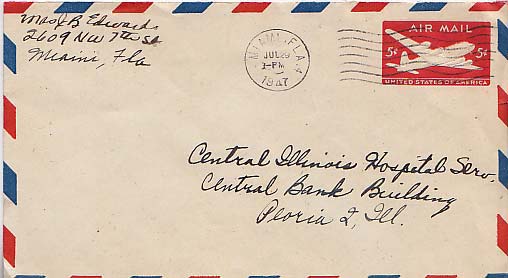 Mrs J B Edwards
2609 NW 7th St
Miami, Fla
MIAMI, FLA. 4
JUL 29
1-PM
1947
AIR MAIL
5¢ 5¢
UNITED STATES OF AMERICA
Central Illinois Hospital Serv.
Central Bank Building
Peoria 2, Ill.